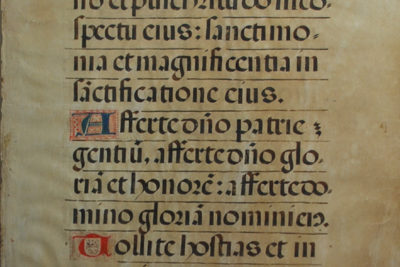 sio et pulchritudo in co-
spectu eius: sanctimo-
nia et magnificentia in
sãctificatione eius.
Afferte dño patrie
gentiũ, afferte dño glo-
riã et honorẽ: afferte do-
mino gloriã nomini eiꝰ.
Tollite hostias et in